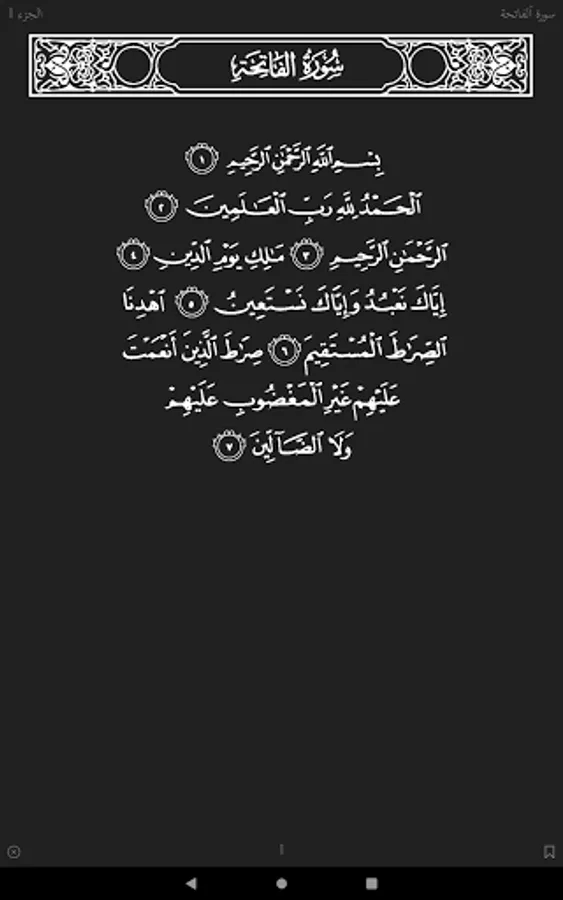 سورة الفاتحة
الجزء ١
سُورَةُ الفَاتِحَةِ
بِسْمِ ٱللَّهِ ٱلرَّحْمَٰنِ ٱلرَّحِيمِ ١
ٱلْحَمْدُ لِلَّهِ رَبِّ ٱلْعَٰلَمِينَ ٢
ٱلرَّحْمَٰنِ ٱلرَّحِيمِ ٣ مَٰلِكِ يَوْمِ ٱلدِّينِ ٤
إِيَّاكَ نَعْبُدُ وَإِيَّاكَ نَسْتَعِينُ ٥ ٱهْدِنَا
ٱلصِّرَٰطَ ٱلْمُسْتَقِيمَ ٦ صِرَٰطَ ٱلَّذِينَ أَنْعَمْتَ
عَلَيْهِمْ غَيْرِ ٱلْمَغْضُوبِ عَلَيْهِمْ
وَلَا ٱلضَّآلِّينَ ٧
١